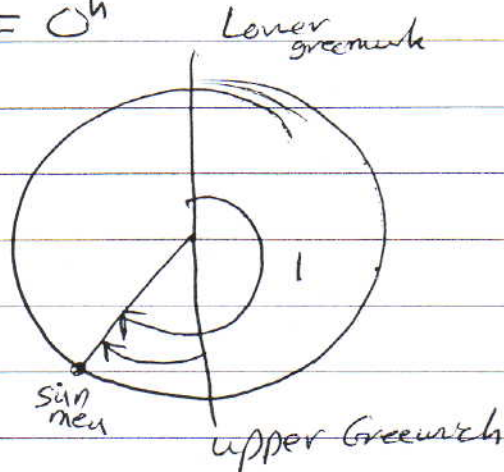 = 0h
Lower
greenwich
1
sun
mean
upper Greenwich